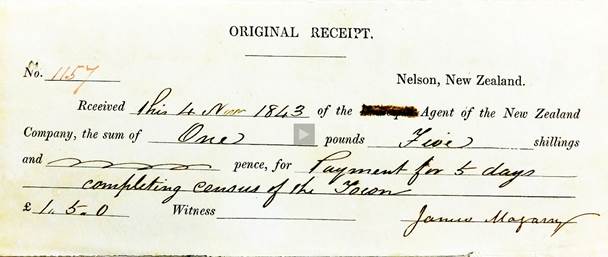 ORIGINAL RECEIPT.
No. 1157 Nelson, New Zealand.
Received this 4 Nov 1843 of the Agent of the New Zealand
Company, the sum of One pounds Five shillings
and pence, for Payment for 5 days
completing census of the Town
£ 1.5.0 Witness James Magarry